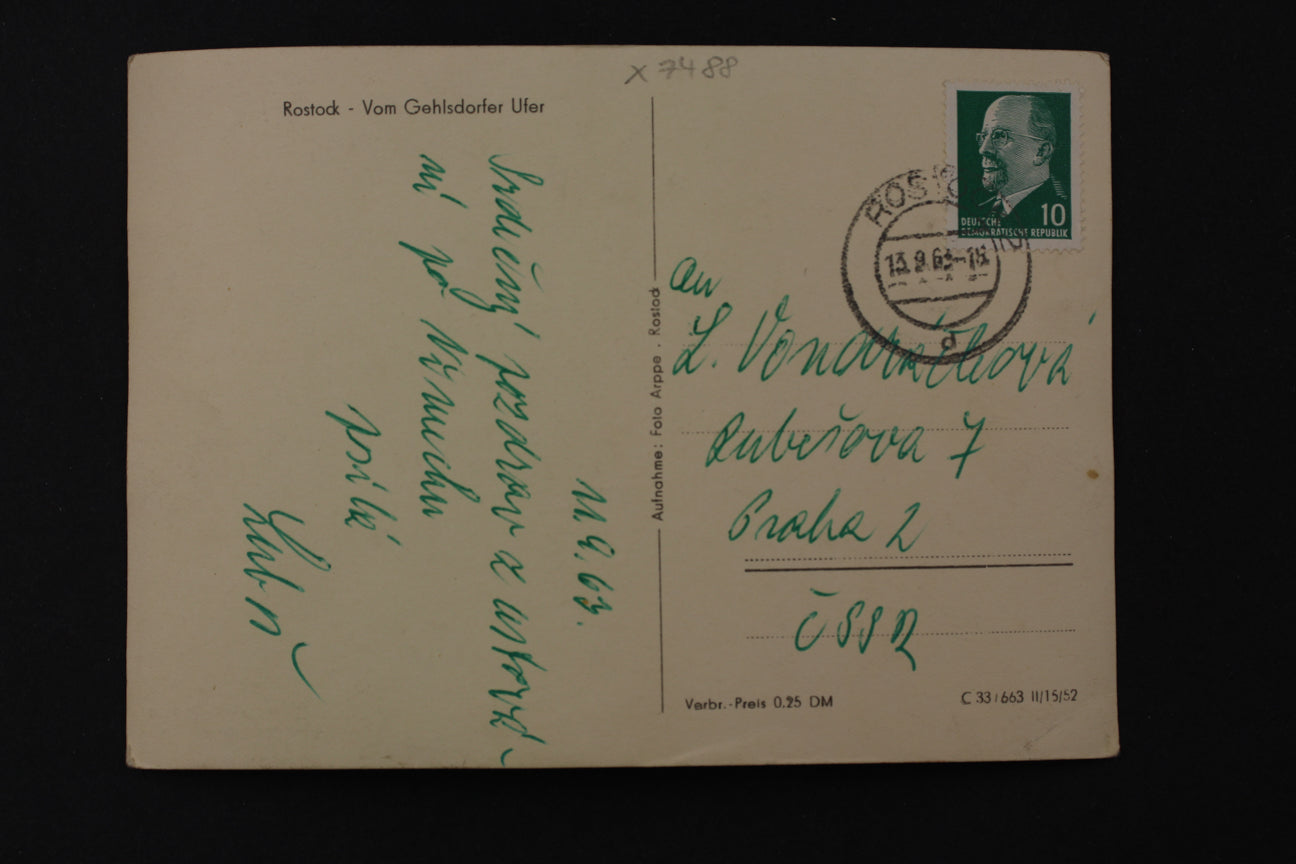 x 7488
Rostock - Vom Gehlsdorfer Ufer
11.9.63.
Srdečný pozdrav z cestová-
ní po Německu
posílá
Luboš
Aufnahme: Foto Arppe, Rostock
DEUTSCHE
DEMOKRATISCHE REPUBLIK
10
ROSTOCK
13.9.63-18
d
An
L. Vondráčková
Rubešova 7
Praha 2
ČSSR
Verbr.-Preis 0.25 DM
C 33/663 II/15/52